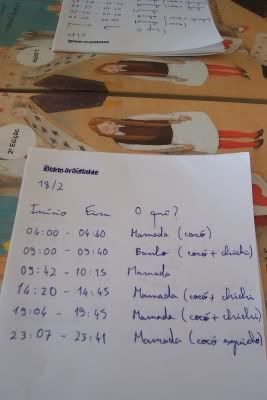 2ª Edição
18/2
Início Fim O quê?
04:00 - 04:40 Mamada (cocó)
09:00 - 09:40 Banho (cocó + chichi)
09:42 - 10:15 Mamada
14:20 - 14:45 Mamada (cocó + chichi
19:04 - 19:45 Mamada (cocó + chichi)
23:07 - 23:41 Mamada (cocó esguicho)